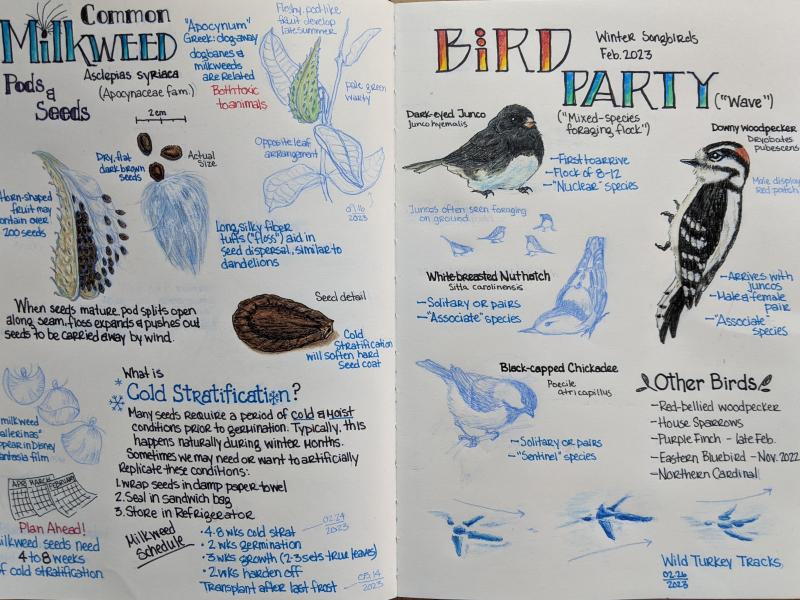 Common
MILKWEED
Pods &
Seeds
Asclepias syriaca
(Apocynaceae fam.)
"Apocynum"
Greek: dog-away
dogbanes &
milkweeds
are related
Both toxic
to animals
Fleshy, pod-like
fruit develop
late summer
pale green
warty
Opposite leaf
arrangement
2 cm
Dry, flat
dark brown
seeds
Actual
Size
Horn-shaped
fruit may
contain over
200 seeds
2023
Long, silky fiber
tufts ("floss") aid in
seed dispersal, similar to
dandelions
When seeds mature, pod splits open
along seam, floss expands & pushes out
seeds to be carried away by wind.
Seed detail
Cold
Stratification
will soften hard
seed coat
What is
Cold Stratification?
Many seeds require a period of cold & moist
conditions prior to germination. Typically, this
happens naturally during winter months.
Sometimes we may need or want to artificially
Replicate these conditions:
1. wrap seeds in damp paper towel
2. Seal in sandwich bag
3. Store in Refrigerator
milkweed
allerinas"
pear in Disney
antasia film
APR MARCH FEBRUARY
Plan Ahead!
milkweed seeds need
4 to 8 weeks
of cold stratification
Milkweed
Schedule
02.24
2023
• 4-8 wks cold strat
• 2 wks germination
• 3 wks growth (2-3 sets true leaves)
• 2 wks harden off
Transplant after last frost
05.14
2023
BIRD
PARTY
("Wave")
Winter Songbirds
Feb. 2023
("Mixed-species
foraging flock")
Dark-eyed Junco
Junco hyemalis
- First to arrive
- Flock of 8-12
- "Nuclear" species
Juncos often seen foraging
on ground
Downy woodpecker
Dryobates
pubescens
Male displays
Red patch
- Arrives with
juncos
- Male & female
pair
- "Associate"
species
White-breasted Nuthatch
Sitta carolinensis
- Solitary or pairs
- "Associate" species
Black-capped Chickadee
Poecile
atricapillus
- Solitary or pairs
- "Sentinel" species
Other Birds
- Red-bellied woodpecker
- House Sparrows
- Purple Finch - late Feb.
- Eastern Bluebird - Nov. 2022
- Northern Cardinal
Wild Turkey Tracks
02.26
2023